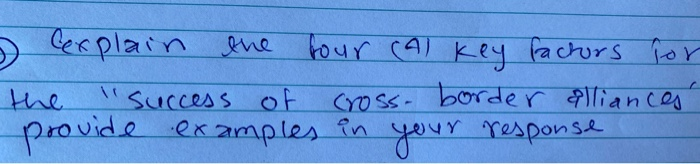 explain the four (4) key factors for
the "success of cross-border alliances"
provide examples in your response